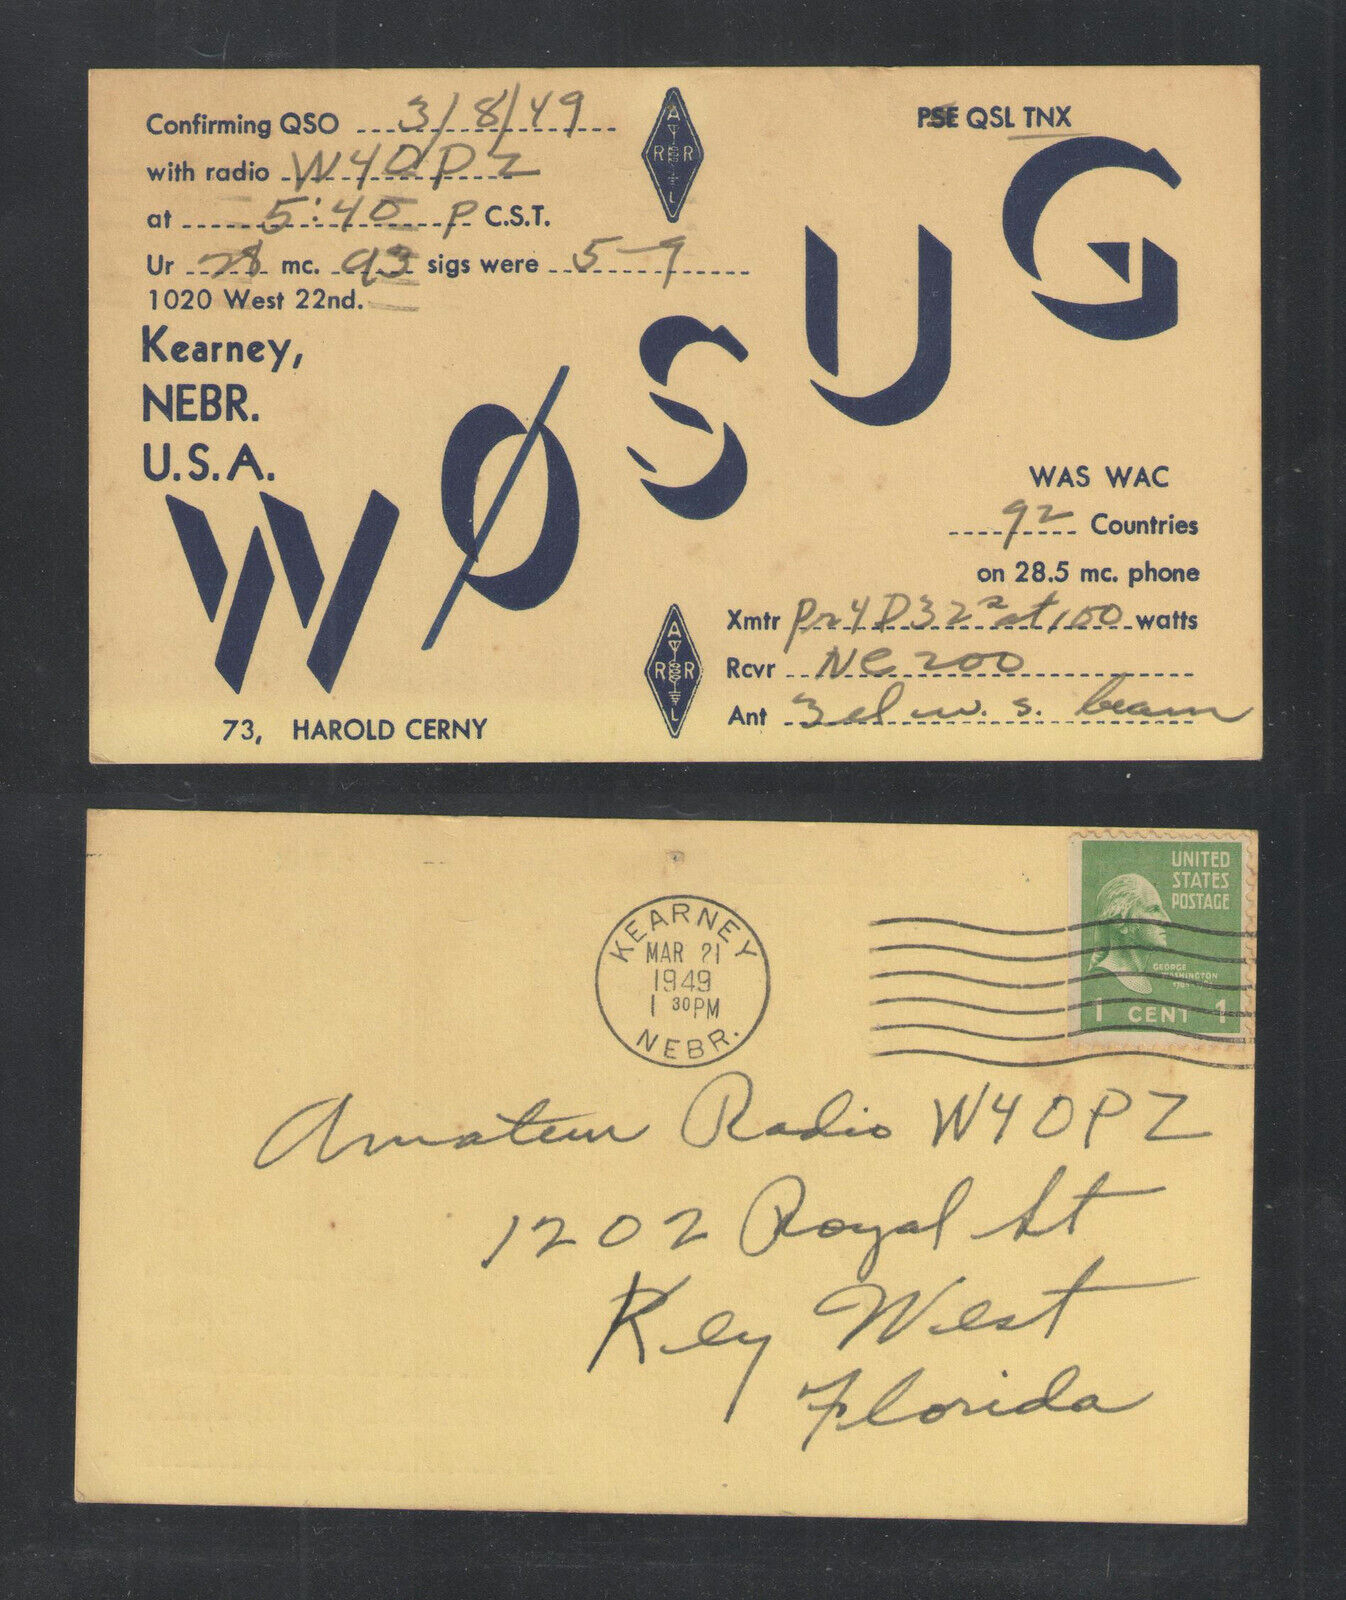 Confirming QSO 3/8/49
with radio W4OPZ
at 5:40 P C.S.T.
Ur 28 mc. A3 sigs were 5-9
1020 West 22nd.
Kearney,
NEBR.
U.S.A.
A
R R
L
PSE QSL TNX
WØSUG
WAS WAC
92 Countries
on 28.5 mc. phone
Xmtr Pr 4D32s at 100 watts
Rcvr NC 200
Ant 3 el w. s. beam
A
R R
L
73, HAROLD CERNY
UNITED
STATES
POSTAGE
GEORGE
WASHINGTON
1 CENT 1
KEARNEY
MAR 21
1949
1 30PM
NEBR.
Amateur Radio W4OPZ
1202 Royal St
Key West
Florida